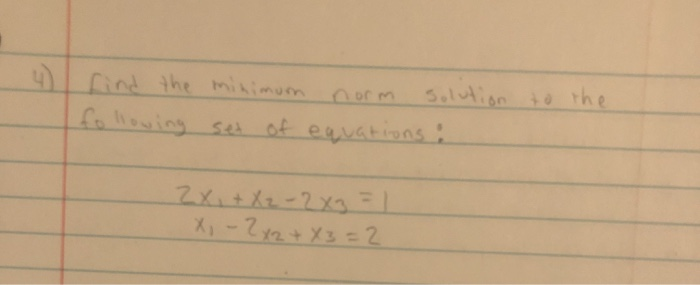 4) Find the minimum norm solution to the
following set of equations:
2x₁ + x₂ - 2x₃ = 1
x₁ - 2x₂ + x₃ = 2